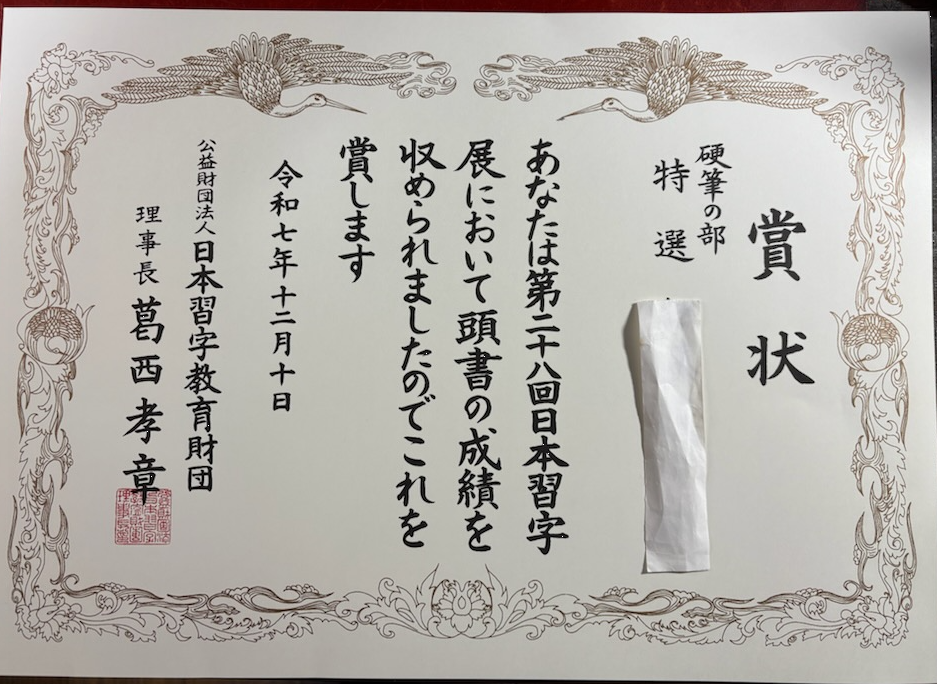 賞状
硬筆の部
特選
あなたは第二十八回日本習字
展において頭書の成績を
収められましたのでこれを
賞します
令和七年十二月十日
公益財団法人日本習字教育財団
理事長葛西孝章